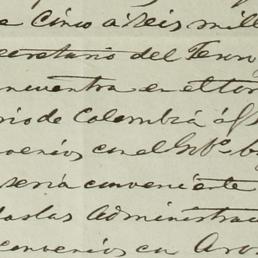 e Cinco a seis mill
Secretario del Terr
ncuentra en el ter
rio de Colombia á
venios con el Gbº.
seria conveniente
das las Administra
convenios con